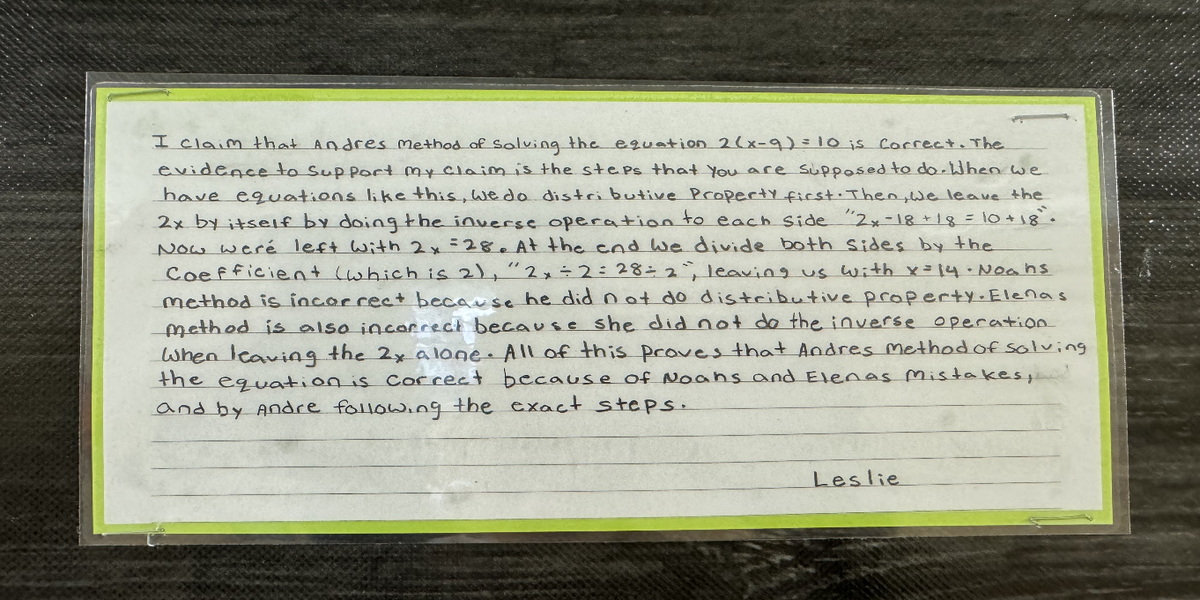 I claim that Andres method of solving the equation 2(x-9)=10 is correct. The
evidence to support my claim is the steps that you are supposed to do. When we
have equations like this, we do distributive property first. Then, we leave the
2x by itself by doing the inverse operation to each side "2x-18+18=10+18".
Now weré left with 2x=28. At the end we divide both sides by the
coefficient (which is 2), "2x÷2=28÷2", leaving us with x=14. Noahs
method is incorrect because he did not do distributive property. Elenas
method is also incorrect because she did not do the inverse operation
when leaving the 2x alone. All of this proves that Andres method of solving
the equation is correct because of Noahs and Elenas mistakes,
and by Andre following the exact steps.
Leslie